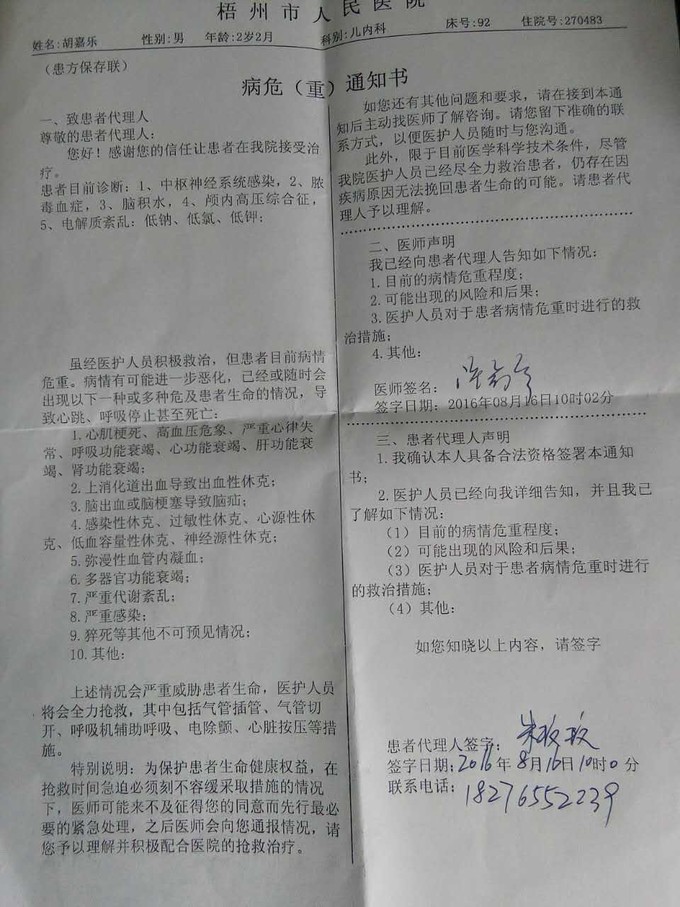 梧州市人民医院
姓名:胡嘉乐 性别:男 年龄:2岁2月 科别:儿内科 床号:92 住院号:270483
（患方保存联）
病危（重）通知书
一、致患者代理人
尊敬的患者代理人:
您好！感谢您的信任让患者在我院接受治
疗。
患者目前诊断: 1、中枢神经系统感染，2、脓
毒血症，3、脑积水，4、颅内高压综合征，
5、电解质紊乱: 低钠、低氯、低钾;
虽经医护人员积极救治，但患者目前病情
危重。病情有可能进一步恶化，已经或随时会
出现以下一种或多种危及患者生命的情况，导
致心跳、呼吸停止甚至死亡:
1.心肌梗死、高血压危象、严重心律失
常、呼吸功能衰竭、心功能衰竭、肝功能衰
竭、肾功能衰竭;
2.上消化道出血导致出血性休克;
3.脑出血或脑梗塞导致脑疝;
4.感染性休克、过敏性休克、心源性休
克、低血容量性休克、神经源性休克;
5.弥漫性血管内凝血;
6.多器官功能衰竭;
7.严重代谢紊乱;
8.严重感染;
9.猝死等其他不可预见情况;
10.其他:
上述情况会严重威胁患者生命，医护人员
将会全力抢救，其中包括气管插管、气管切
开、呼吸机辅助呼吸、电除颤、心脏按压等措
施。
特别说明: 为保护患者生命健康权益，在
抢救时间急迫必须刻不容缓采取措施的情况
下，医师可能来不及征得您的同意而先行最必
要的紧急处理，之后医师会向您通报情况，请
您予以理解并积极配合医院的抢救治疗。
如您还有其他问题和要求，请在接到本通
知后主动找医师了解咨询。请您留下准确的联
系方式，以便医护人员随时与您沟通。
此外，限于目前医学科学技术条件，尽管
我院医护人员已经尽全力救治患者，仍存在因
疾病原因无法挽回患者生命的可能。请患者代
理人予以理解。
二、医师声明
我已经向患者代理人告知如下情况:
1.目前的病情危重程度;
2.可能出现的风险和后果;
3.医护人员对于患者病情危重时进行的救
治措施;
4.其他:
医师签名:
签字日期: 2016年08月16日10时02分
三、患者代理人声明
1.我确认本人具备合法资格签署本通知
书;
2.医护人员已经向我详细告知，并且我已
了解如下情况:
（1）目前的病情危重程度;
（2）可能出现的风险和后果;
（3）医护人员对于患者病情危重时进行
的救治措施;
（4）其他:
如您知晓以上内容，请签字
患者代理人签字:
签字日期: 2016年8月16日10时0分
联系电话: 18276552239